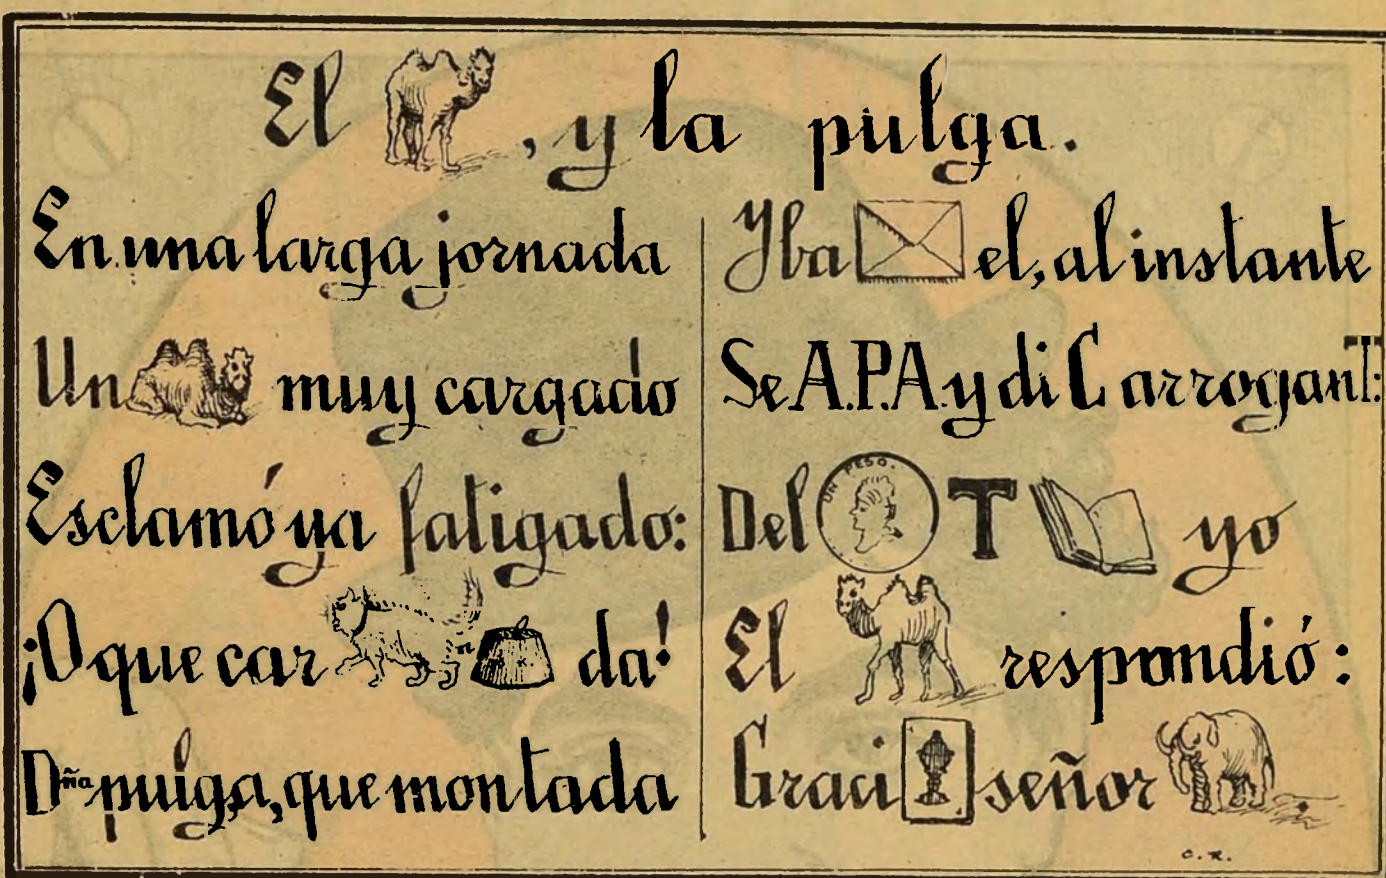 El , y la pulga.
En una larga jornada
Un muy cargado
Esclamó ya fatigado:
¡O que car da!
Dña pulga, que montada
Yba el, al instante
Se A.P.A. y di C arroganT:
Del UN PESO. T yo
El respondió:
Graci señor
C.R.